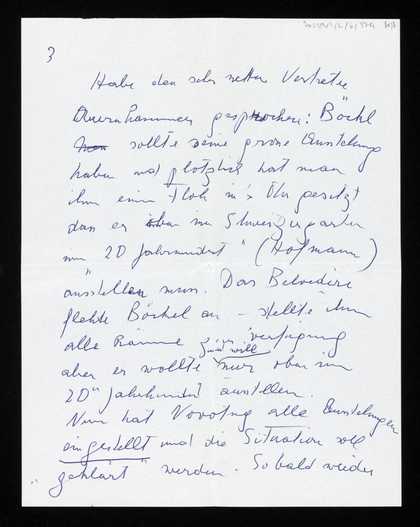 3
Habe den sehr netten Vertreter
Auernhammer gesprochen: Böckl
sollte seine grosse Ausstellung
haben und plötzlich hat man
ihm einen Floh in's Ohr gesetzt
dass er oben im Schweizergarten
im 20 Jahrhundert" (Hofmann)
ausstellen muss. Das Belvedere
flehte Böckel an – stellte ihm
alle Räume zur verfügung
aber er wollte und will nur oben im
20" Jahrhundert austellen.
Nun hat Novotny alle Austellungen
eingestellt und die Situation soll
geklärt" werden. Sobald wieder